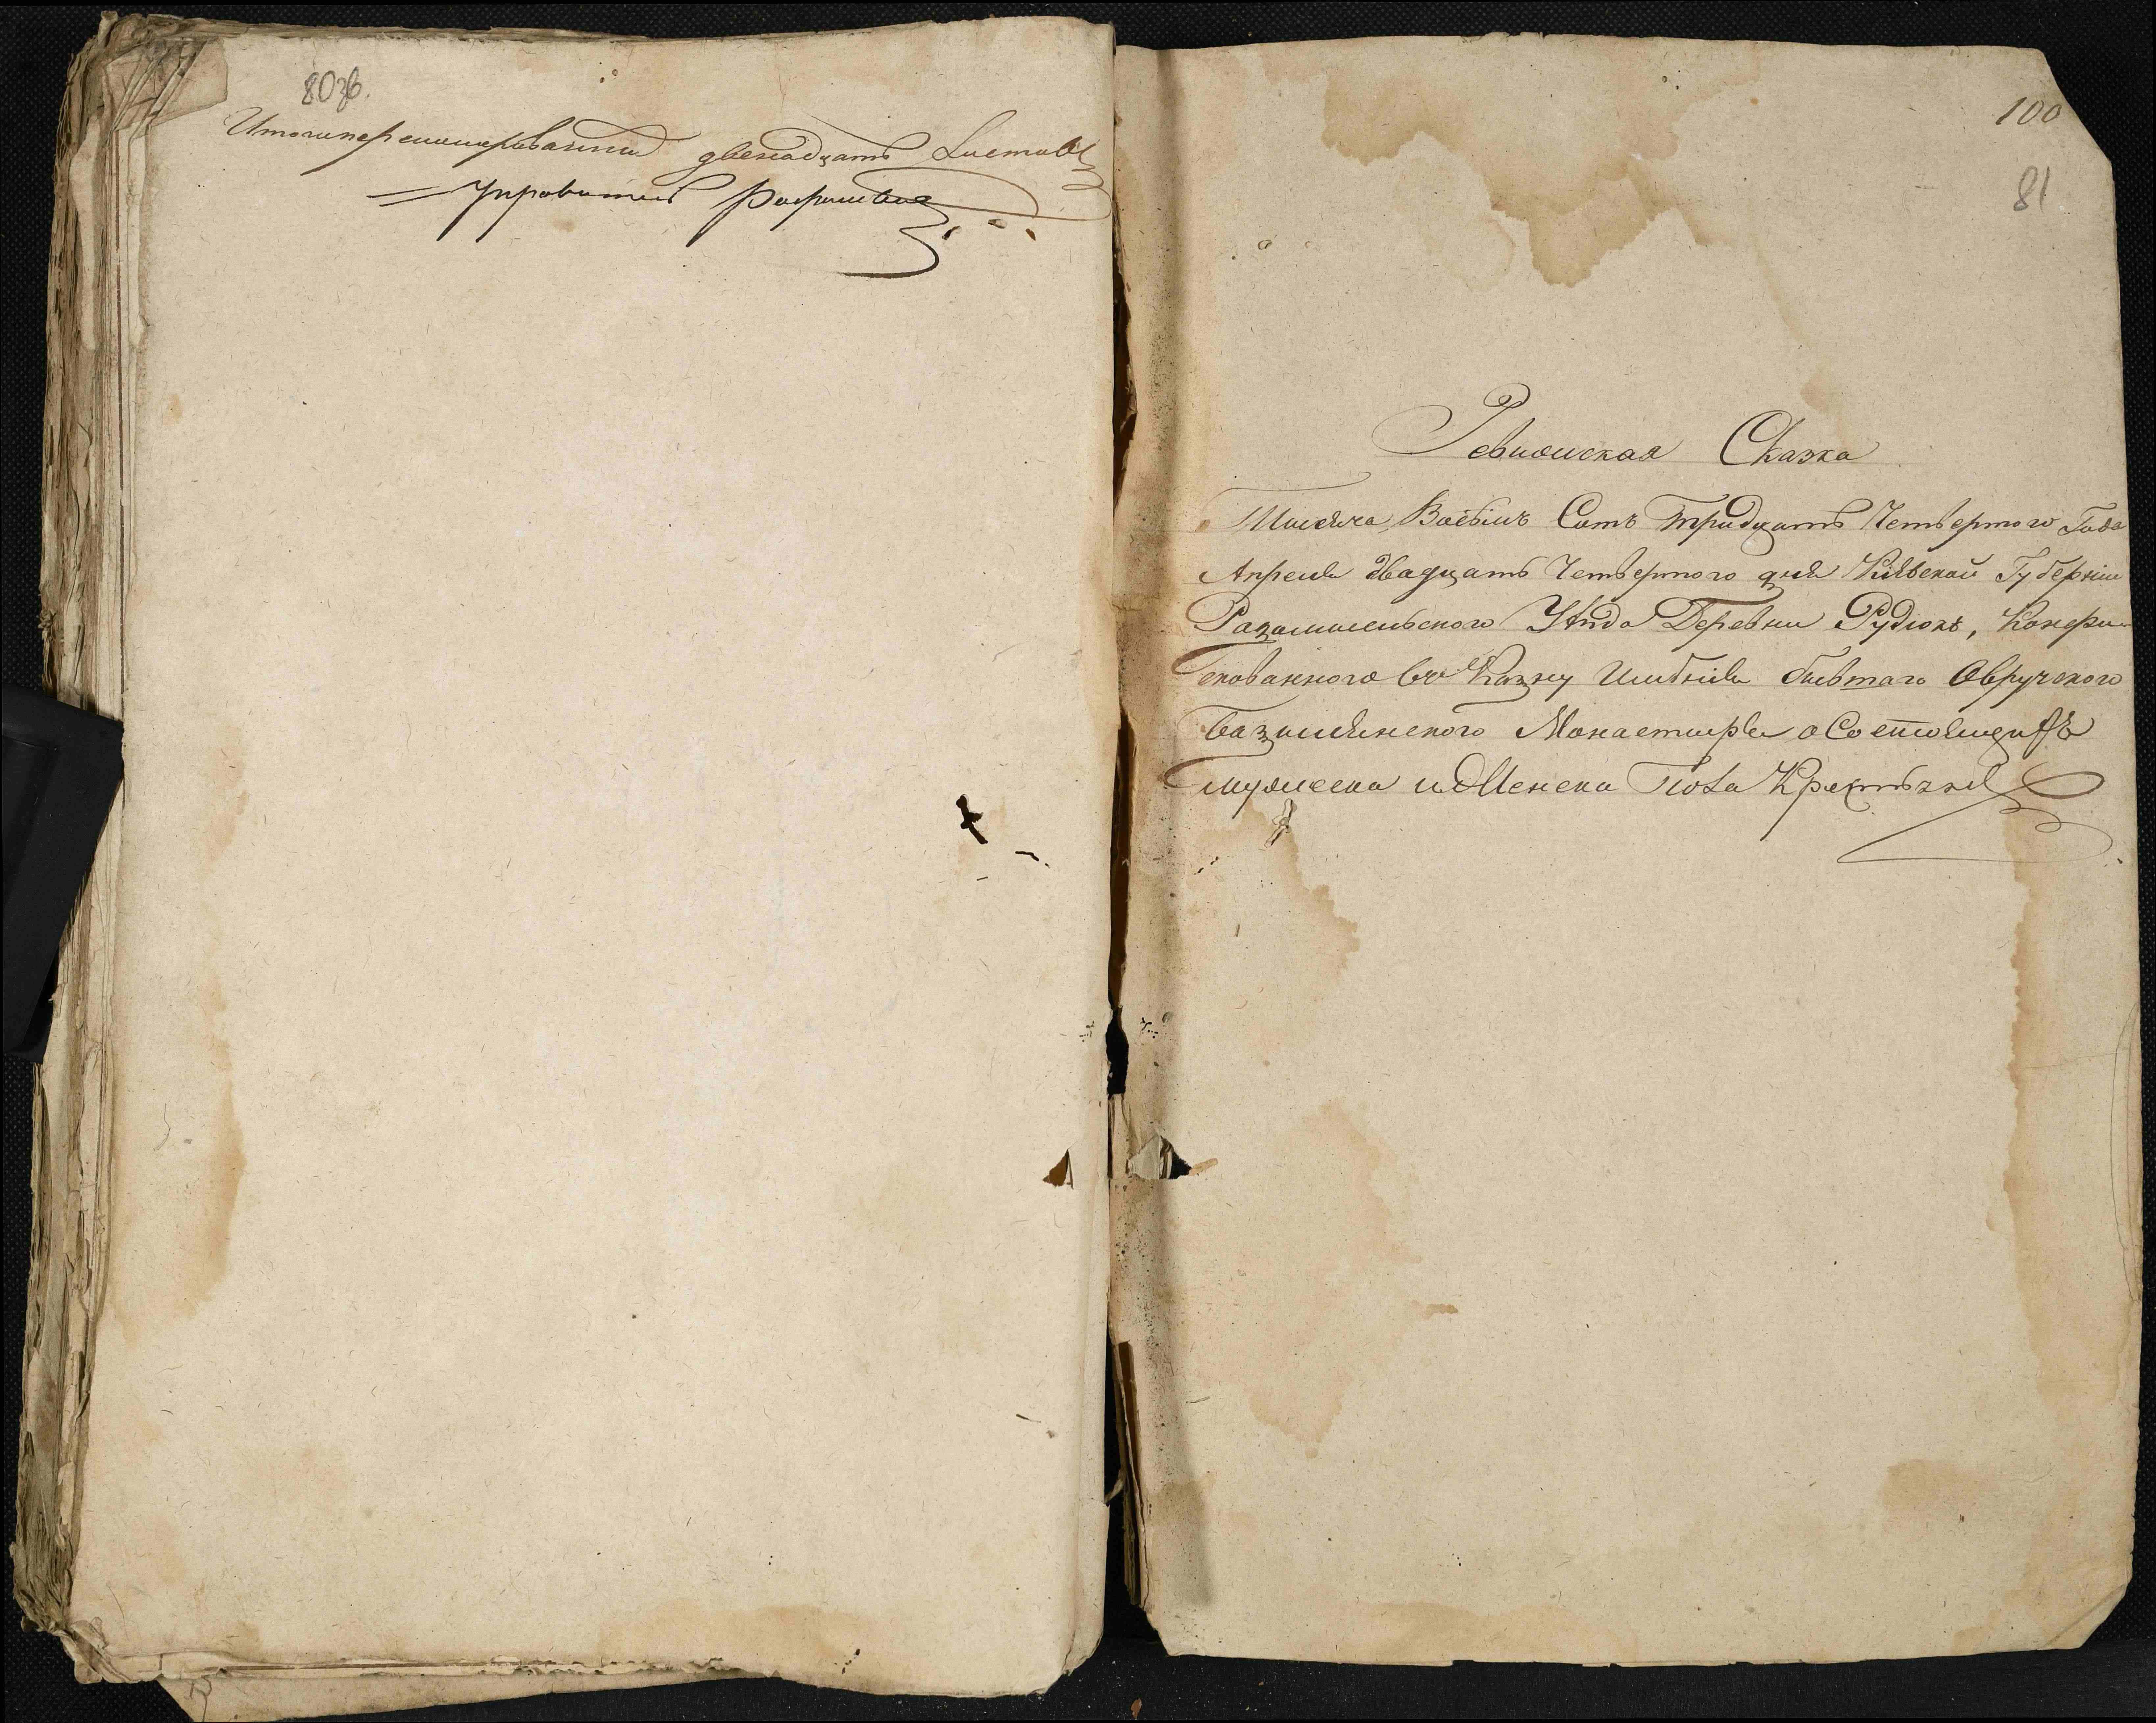 80зв.
Итого пер двенадцать Листовъ
Управитель
100
81
Ревизская Сказка
Тысяча Восѣмъ Сотъ тридцать Четвертого Года
Апреля двадцать Четвертого дня Кіевской Губерніи
Радомысльского Уѣзда Деревни Рудюкъ, Конфис
кованного въ Казну Имѣнія бывшаго Овручского
базиліянского Монастиря о Состоящихъ
мужеска и Женска Пола Крестьянъ